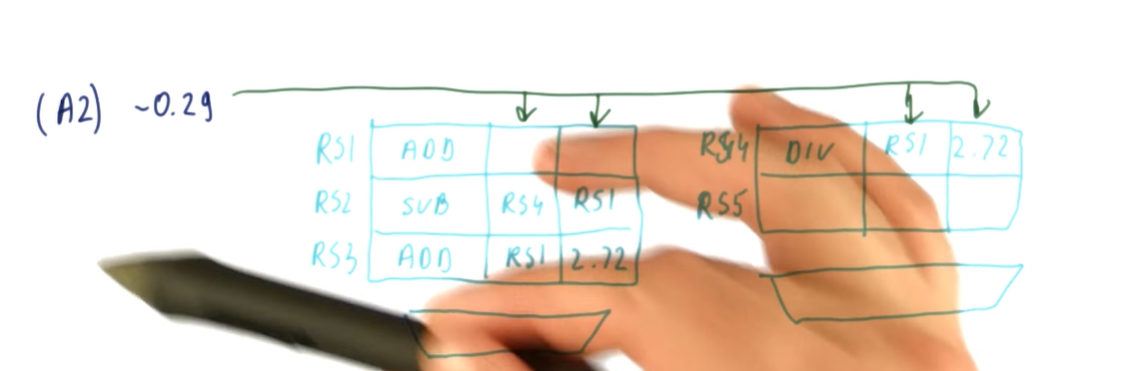 (A2) -0.29
RS1 ADD
RS2 SUB RS4 RS1
RS3 ADD RS1 2.72
RS4 DIV RS1 2.72
RS5